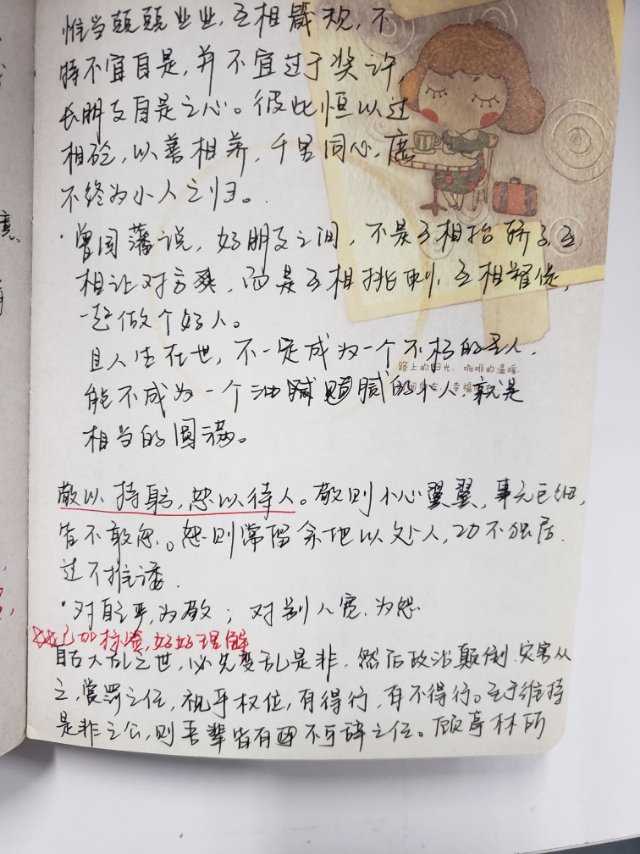 惟当兢兢业业,互相箴规,不
特不宜自是,并不宜过于奖许,
长朋友自是之心。彼此恒以过
相砭,以善相养,千里同心,庶
不终为小人之归。
·曾国藩说,好朋友之间,不是互相抬轿子,互
相让对方爽,而是互相挑刺,互相督促,
一起做个好人。
且人生在世,不一定成为一个不朽的圣人,
能不成为一个油腻的小人,就是
相当的圆满。
路上的阳光,咖啡的温暖
敬以持躬,恕以待人。敬则小心翼翼,事无巨细,
皆不敢忽。恕则常留余地以处人,功不独居,
过不推诿。
·对自己严,为敬;对别人宽,为恕
已加标签,好好理解
自古大乱之世,必先变乱是非,然后政治颠倒,灾害从
之,赏罚之任,视乎权位,有得行,有不得行。至于维持
是非之公,则吾辈皆有不可辞之任。顾亭林所